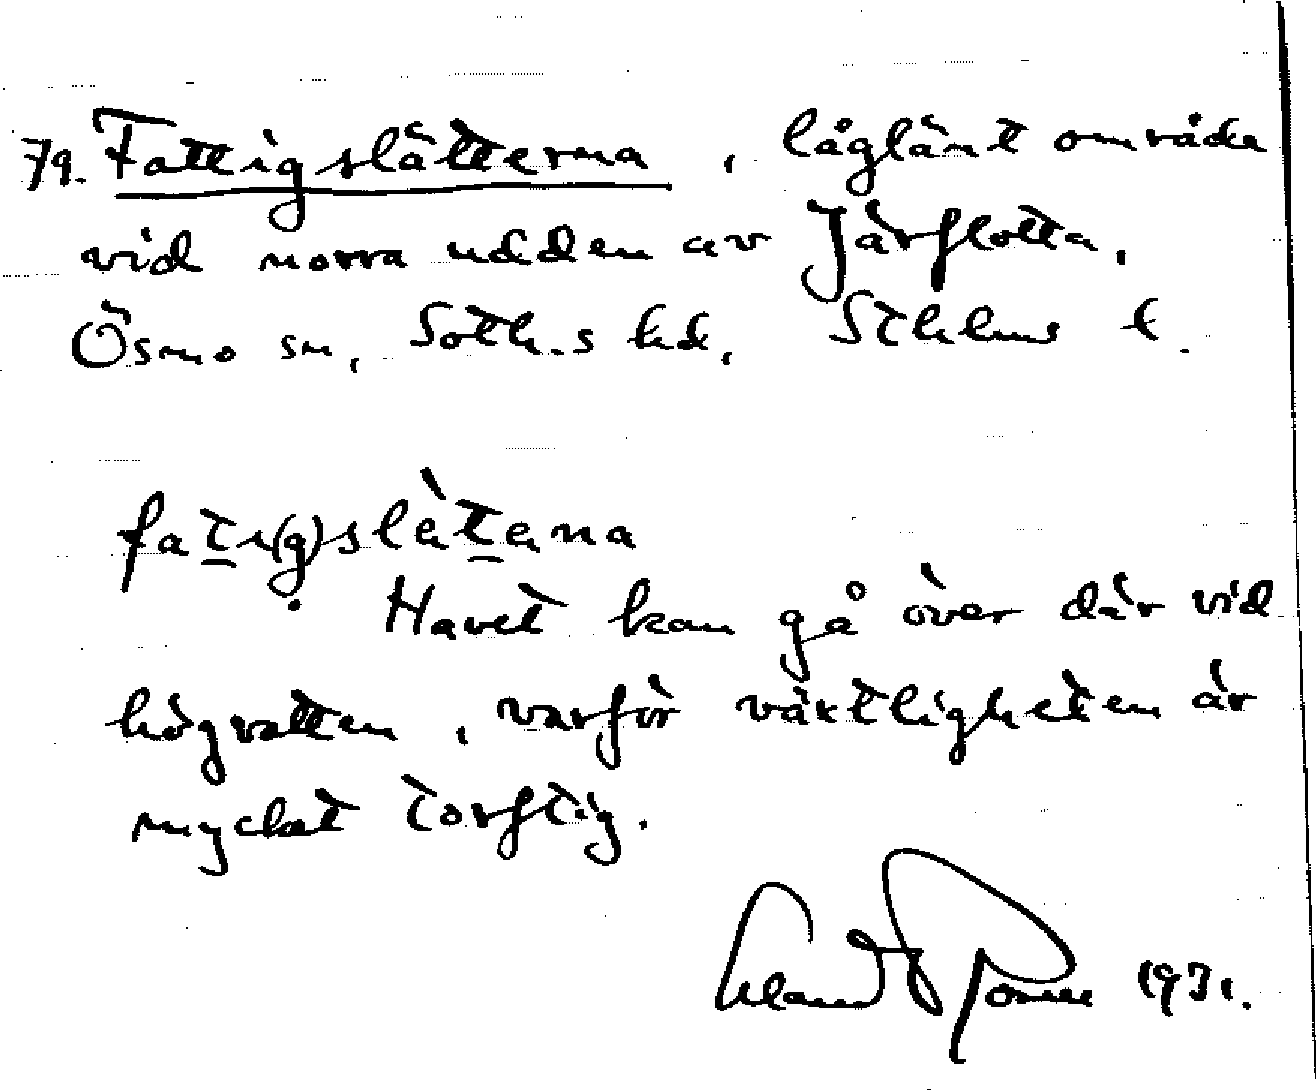 79. Fattigslätterna, låglänt område
vid norra udden av Järflotta,
Ösmo sn, Soth.s hd, Sthlms l.
fati(g)slètena
Havet kan gå över där vid
högvatten, varför växtligheten är
mycket torftig.
1931.